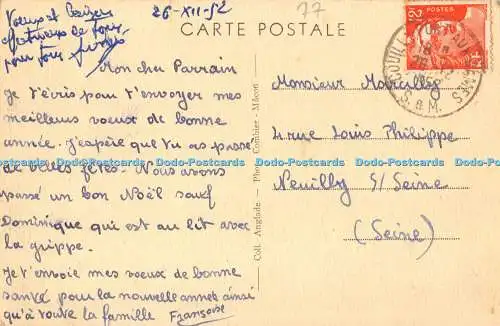 Voeux et Baisers
affectueux de tous
pour tous
26-XII-52
77
CARTE POSTALE
Mon cher Parrain
Je t'écris pour t'envoyer mes
meilleurs voeux de bonne
année. J'espère que tu as passé
de belles fêtes. Nous avons
passé un bon Noël sauf
Dominique qui est au lit avec
la grippe.
Je t'envoie mes voeux de bonne
santé pour la nouvelle année ainsi
qu'à toute la famille Françoise
Coll. Anglade - Phot. Combier - Mâcon
Monsieur Marcilly
4 rue Louis Philippe
Neuilly S/ Seine
(Seine)
S. & M.
Dodo-Postcards Dodo-Postcards Dodo-Postcards Dodo-Postcards Dodo-Postcards